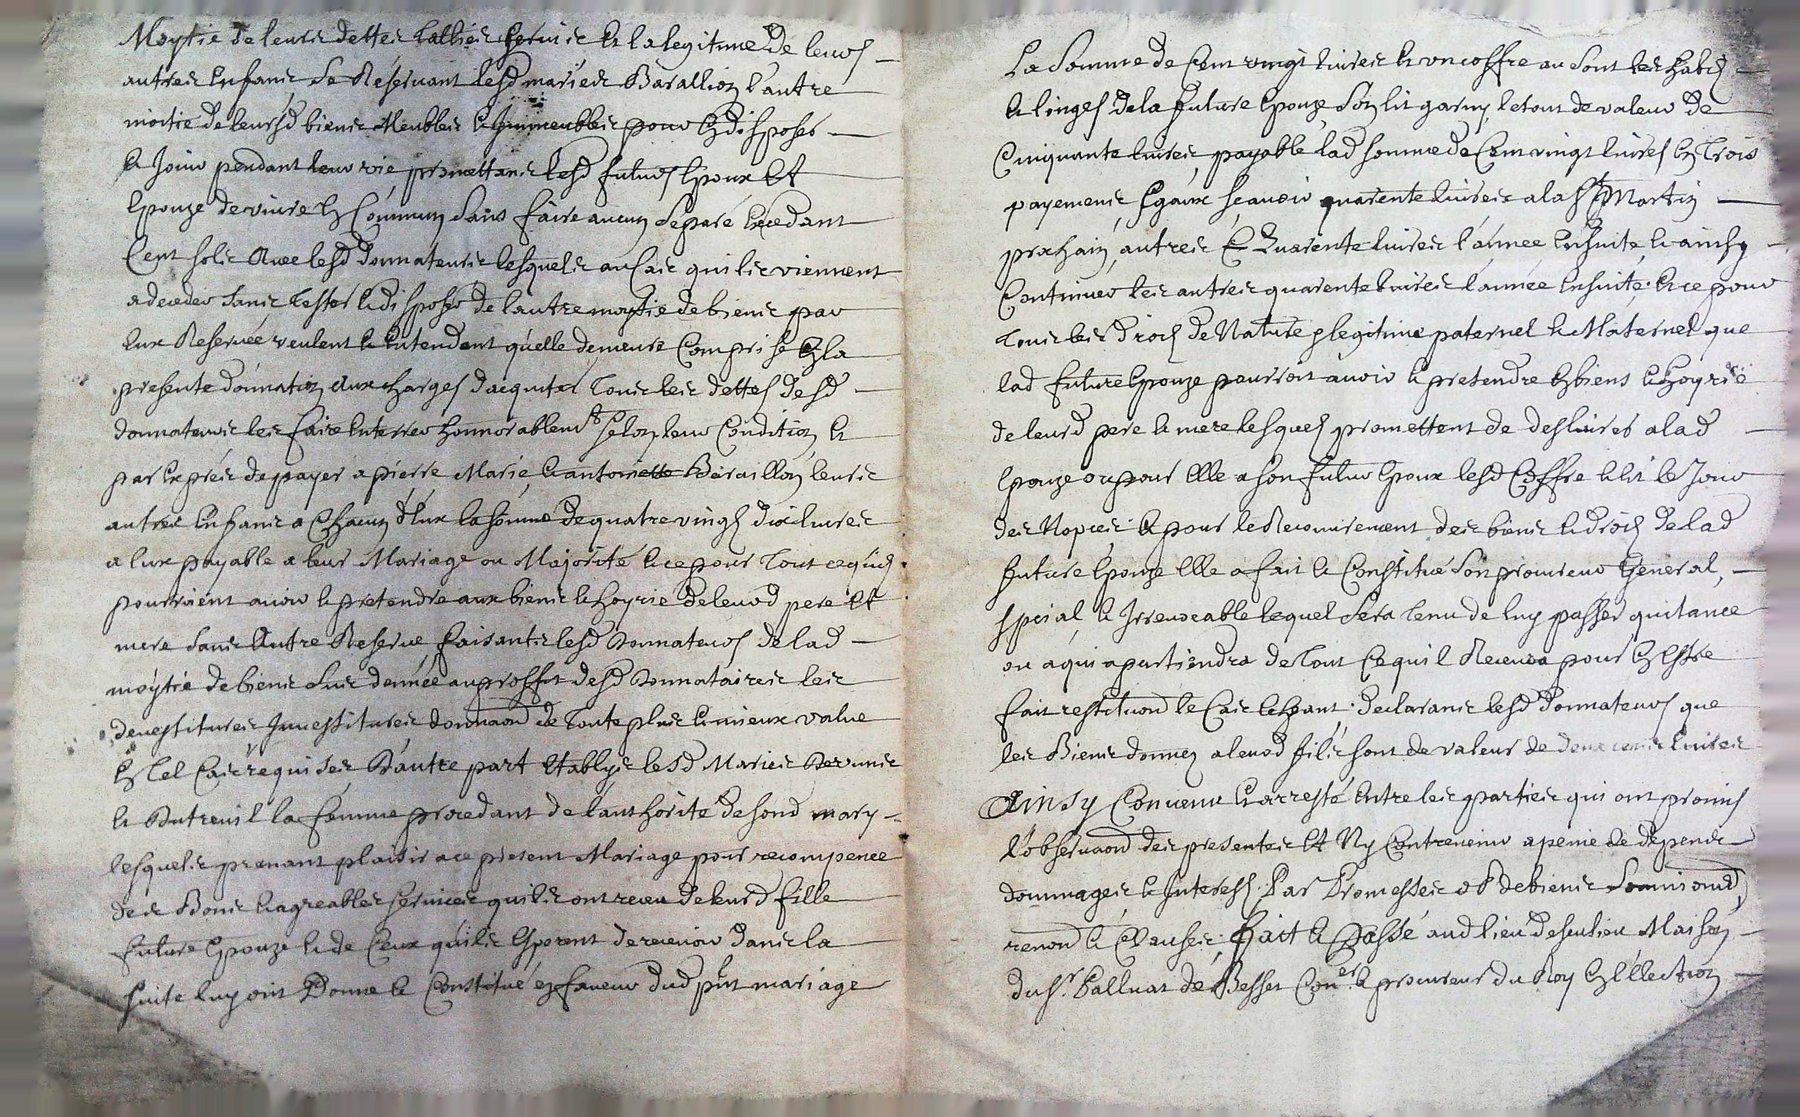 Moytie de leurs dettes tallies services et la legitime de leurs
autres enfans se Reservant lesd mariés Barallion l'autre
moitié de leursd biens Meubles et Immeubles pour en disposer
et Jouir pendant leur vie, promettans lesd futurs Epoux Et
Epouze de vivre en Commun sans faire aucun separé Excedant
Cent sols Avec lesd donnateurs lesquels au Cas quils viennent
a deceder sans tester et disposer de l'autre moytie de biens par
Eux Reservée veulent et Entendent qu'elle demeure Comprise En la
presente donnation aux charges dacquiter tous les dettes desd
donnateurs les faire Enterrer honnorablemt selon leur Condition et
par Exprés de payer a pierre Marie, et antoinette Barallion leurs
autres Enfans a Chacun d'Eux la somme de quatre vingt dix livres
a Eux payable a leur Mariage ou Majorité et ce pour tout ce quils
pourroient avoir et pretendre aux biens et hoyrie de leurd pere Et
mere sans Autre Reserve, faisants lesd Donnateurs de lad
moytié de biens sus donnée au proffit desd Donnataires les
devestitures Investitures donnaon de toute plus et mieux value
En tel Cas requises D'autre part Etablys lesd Mariés
et la femme procedant de l'authorité de sond mary
lesquels prenant plaisir a ce present Mariage pour recompence
des Bons et agreables services quils ont receu de leurd fille
future Epouze et de Ceux quils Esperent de recevoir dans la
suite luy ont Donné et Constitué en faveur dud pnt mariage
La Somme de Cent vingt livres et un coffre ou sont les habits
et linges de la future Epouze, son lit garny, le tout de valeur de
Cinquante livres, payable lad somme de Cent vingt livres En trois
payemens Egaux sçavoir quarente livres a la St Martin
prochain, autres Quarente livres l'année Ensuite, et ainsy
Continuer les autres quarente livres l'année Ensuite, et ce pour
tous les droits de Nature legitime paternel et Maternel que
lad future Epouze pourroit avoir et pretendre En biens et hoyrie
de leurd pere et mere lesquels promettent de deslivrer a lad
Epouze ou pour Elle a son futur Epoux lesd Coffre et lit le Jour
des Nopces. Et pour le Recouvrement des biens et droits de lad
future Epouze Elle a fait et Constitué Son procureur General,
special, et Irrevocable lequel sera tenu de luy passer quitance
ou a qui apartiendra de tout Ce quil Recevra pour En Estre
fait restituaon le Cas Echeant. declarans lesd donnateurs que
les Biens donnez a leurd fils sont de valeur de deux cens livres
Ainsy Convenu et arresté Entre les parties qui ont promis
l'observaon des presentes Et Ny Contrevenir a peine de depens
dommages et Interests. Par Promesses ob de biens
renond et Clauses. fait et Passé aud lieu de Maison
du Sr. Palluat de Besset Coner. et procureur du Roy En l'Election